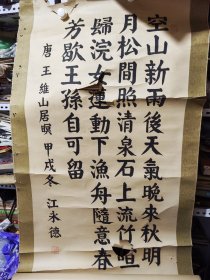 空山新雨後天氣晚來秋明
月松間照清泉石上流竹喧
歸浣女蓮動下漁舟隨意春
芳歇王孫自可留
唐 王維山居暝 甲戌冬 江永德